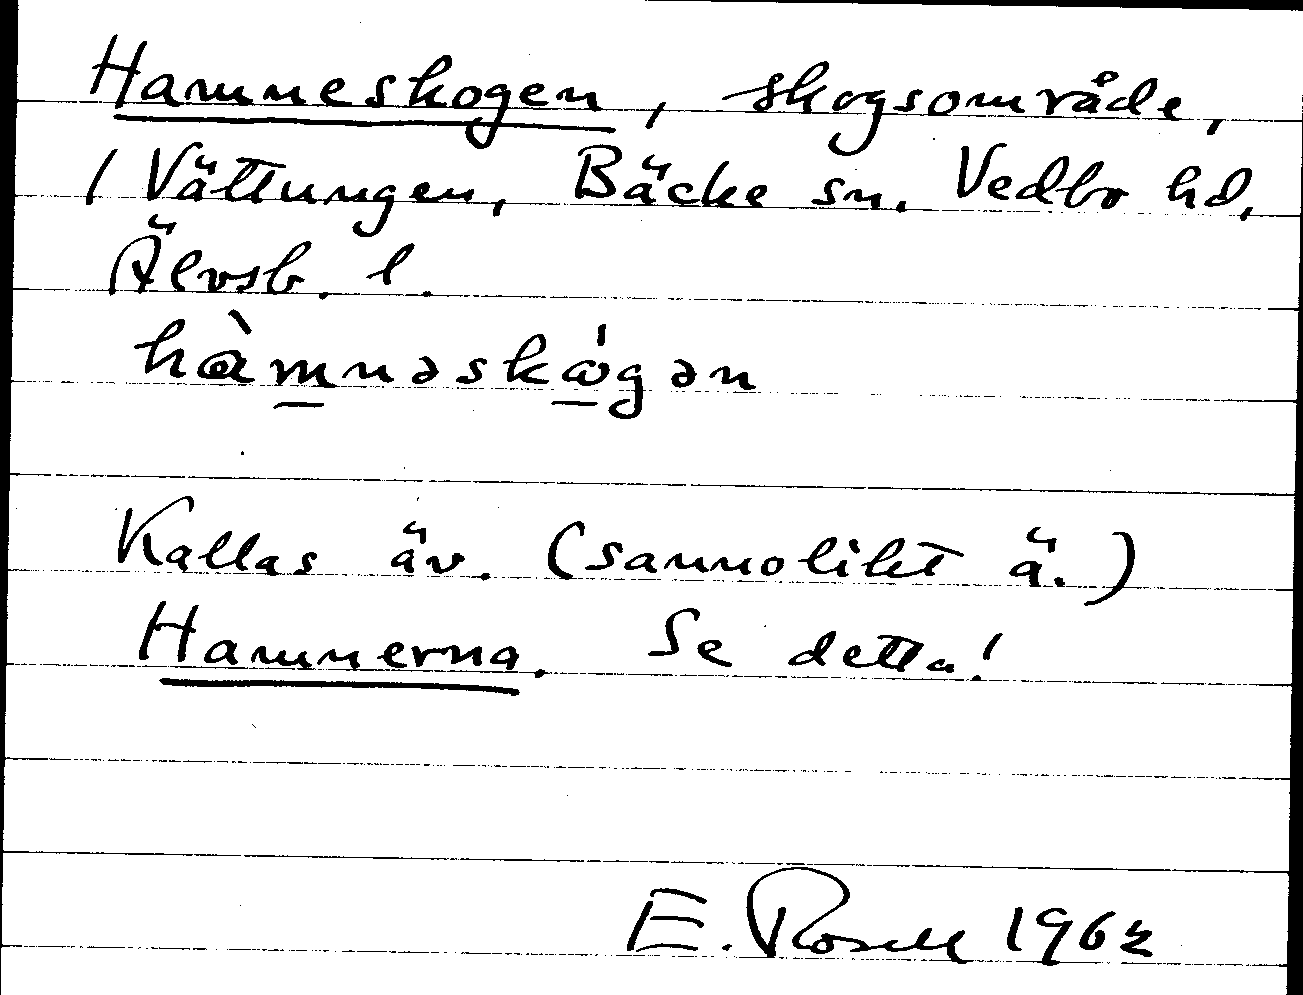 Hamneskogen, skogsområde,
/ Vättungen, Bäcke sn. Vedbo hd,
Älvsb. l.
hàmnəskόgən
Kallas äv. (sannolikt ä.)
Hamnerna. Se detta!
E. Rosell 1962